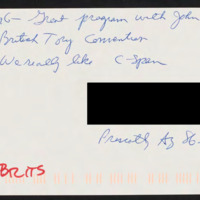 Great program with John
British Tory Convention
We really like C-Span
Prescott, Az 86
BRITS